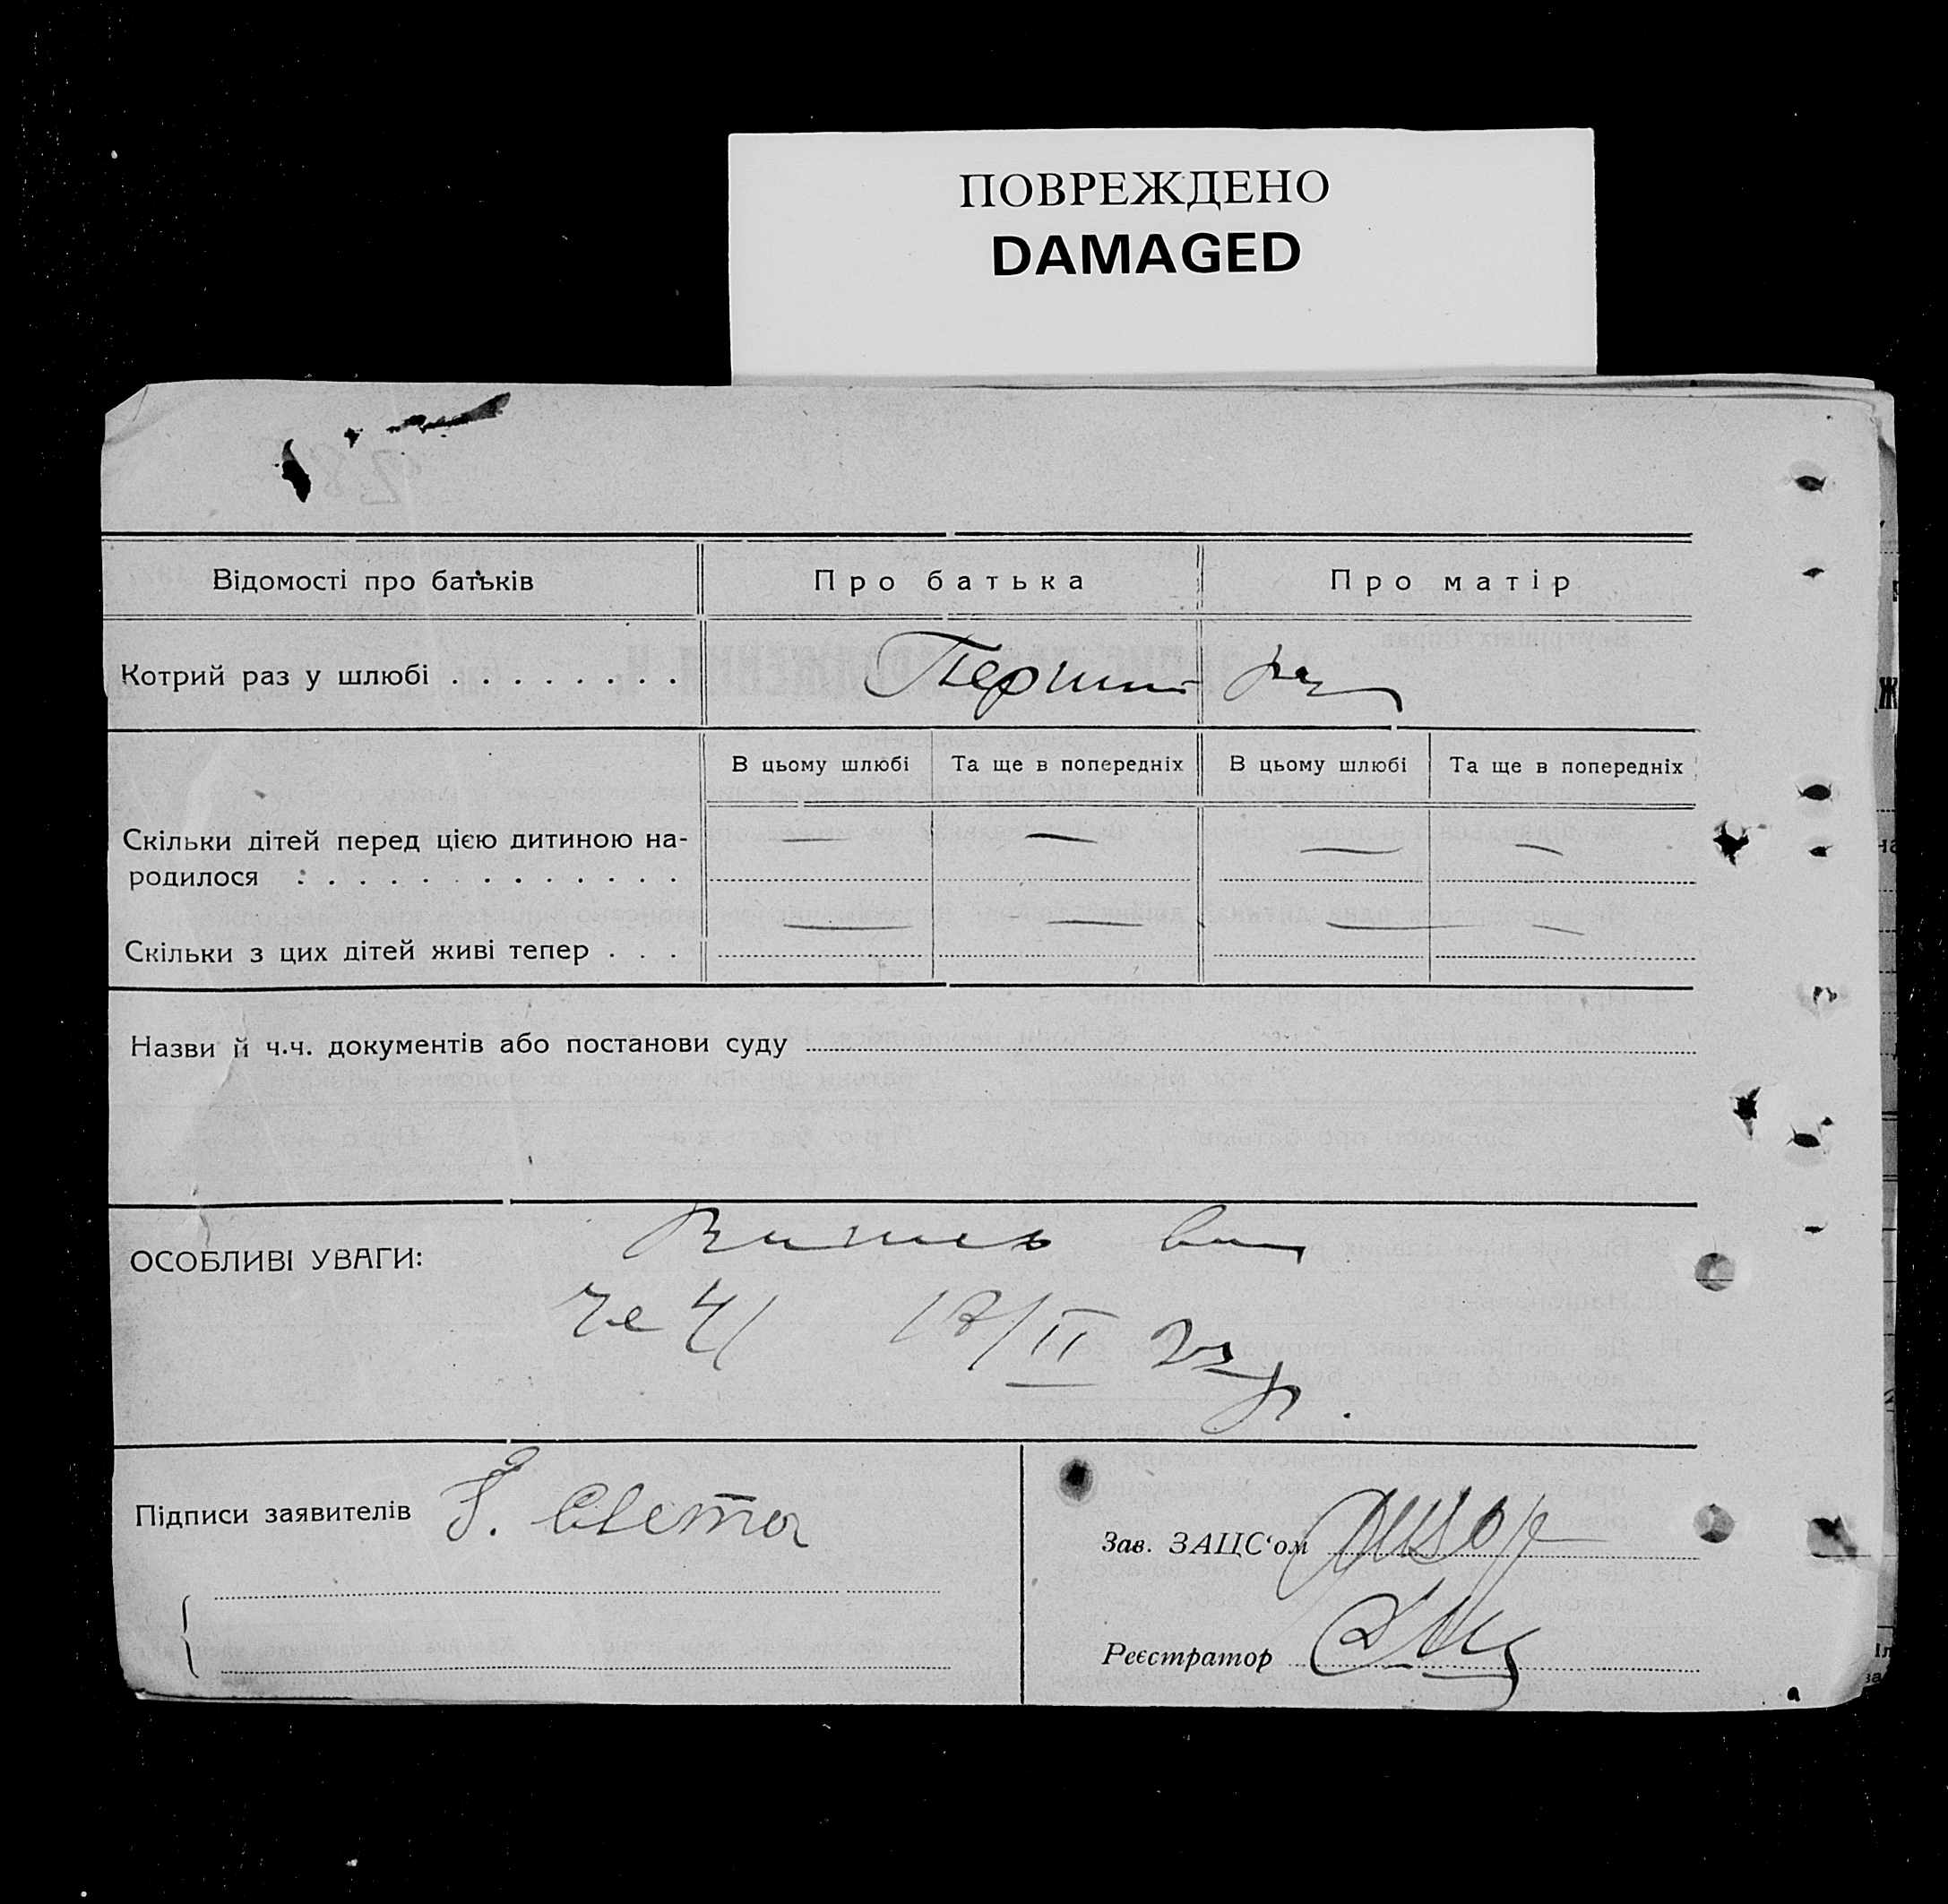 ПОВРЕЖДЕНО
DAMAGED
Відомості про батьків
Про батька
Про матір
Котрий раз у шлюбі . . . . . . . .
Перший раз
В цьому шлюбі
Та ще в попередніх
В цьому шлюбі
Та ще в попередніх
Скільки дітей перед цією дитиною на-
родилося . . . . . . . . . . . . .
— — — —
Скільки з цих дітей живі тепер . . .
— — — —
Назви й ч.ч. документів або постанови суду
ОСОБЛИВІ УВАГИ:
41 II
Підписи заявителів
Зав. ЗАЦС‘ом
Реєстратор